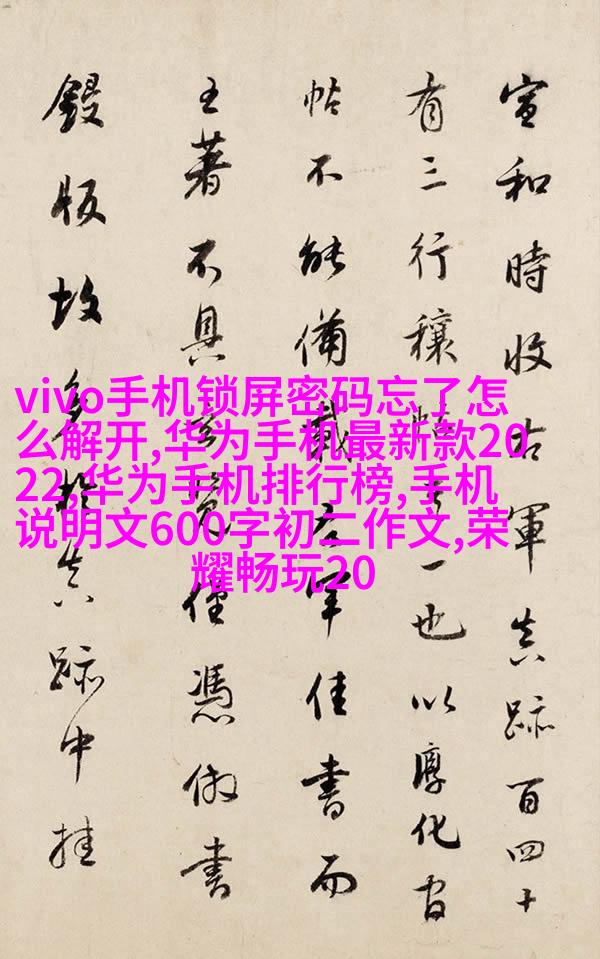 宣和時收右軍真跡百四十
有三行穰帖一也以淳化官
帖不能備載右軍佳書而
王著不具玄覽僅憑倣書
鋟版故多於真跡中挂
vivo手机锁屏密码忘了怎
么解开,华为手机最新款20
22,华为手机排行榜,手机
说明文600字初二作文,荣
耀畅玩20